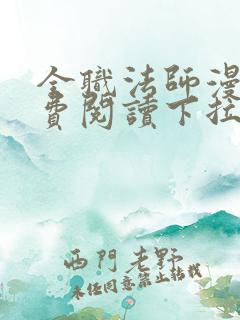 全職法師漫
費閱讀下拉
西門老野
未经同意禁止转载